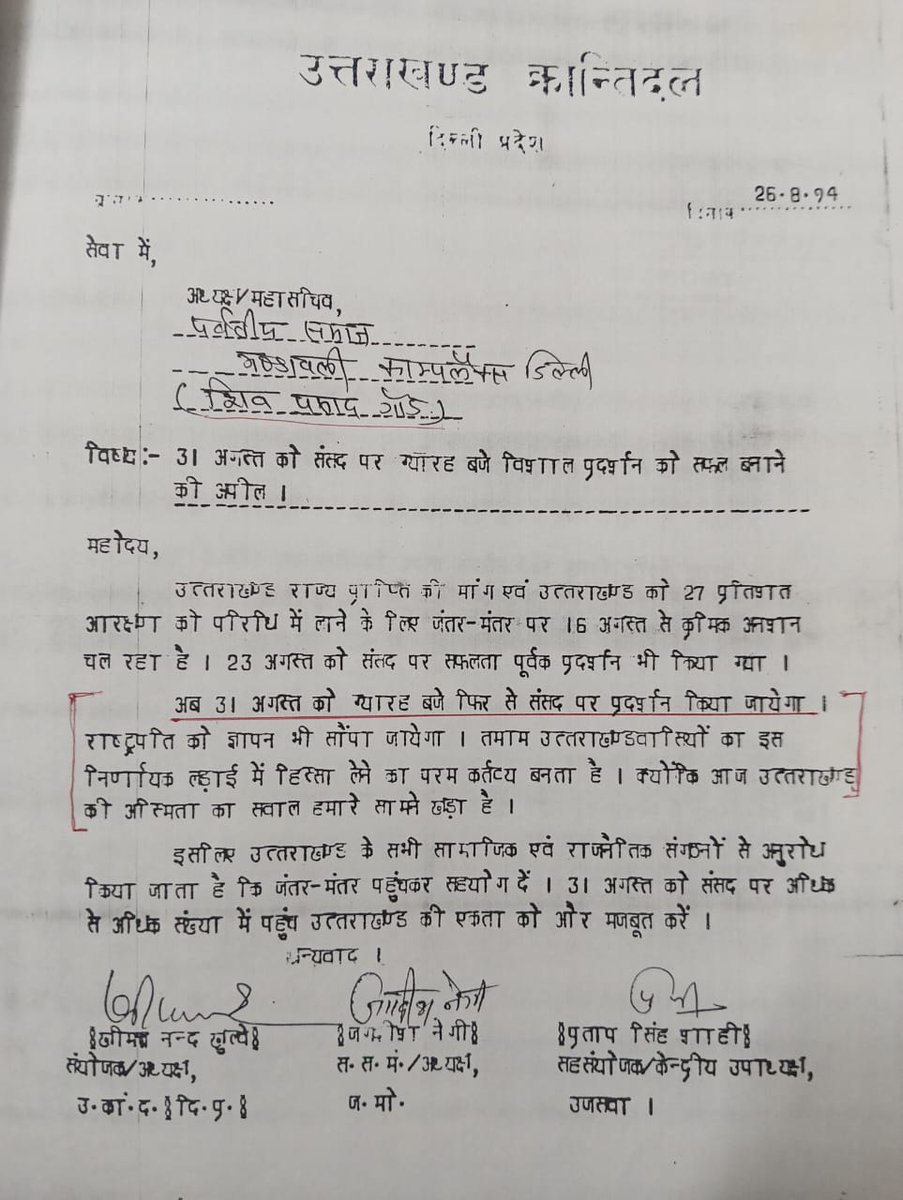 उत्तराखण्ड क्रान्तिदल
दिल्ली प्रदेश
दिनांक 26·8·94
सेवा में,
अध्यक्ष/महासचिव,
पर्वतीय समाज
काम्पलैक्स दिल्ली
(शिव प्रसाद गौड़)
विषय:- 31 अगस्त को संसद पर ग्यारह बजे विशाल प्रदर्शन को सफल बनाने
की अपील ।
महोदय,
उत्तराखण्ड राज्य प्राप्ति की मांग एवं उत्तराखण्ड को 27 प्रतिशत
आरक्षण की परिधि में लाने के लिए जंतर-मंतर पर 16 अगस्त से क्रमिक अनशान
चल रहा है । 23 अगस्त को संसद पर सफलता पूर्वक प्रदर्शन भी किया गया ।
अब 31 अगस्त को ग्यारह बजे फिर से संसद पर प्रदर्शन किया जायेगा ।
राष्ट्रपति को ज्ञापन भी सौंपा जायेगा । तमाम उत्तराखण्डवासियों का इस
निर्णायक लड़ाई में हिस्सा लेने का परम कर्तव्य बनता है । क्योंकि आज उत्तराखण्ड
की अस्मिता का सवाल हमारे सामने खड़ा है ।
इसीलिए उत्तराखण्ड के सभी सामाजिक एवं राजनैतिक संगठनों से अनुरोध
किया जाता है कि जंतर-मंतर पहुंचकर सहयोग दें । 31 अगस्त को संसद पर अधिक
से अधिक संख्या में पहुंच उत्तराखण्ड की एकता को और मजबूत करें ।
धन्यवाद ।
जगदीश नेगी
नन्द जगदीश नेगी प्रताप सिंह शाही
संयोजक/अध्यक्ष, स. स. मं./अध्यक्ष, सहसंयोजक/केन्द्रीय उपाध्यक्ष,
उ. कां. द. दि. प्र. ज. मो. उजसवा ।